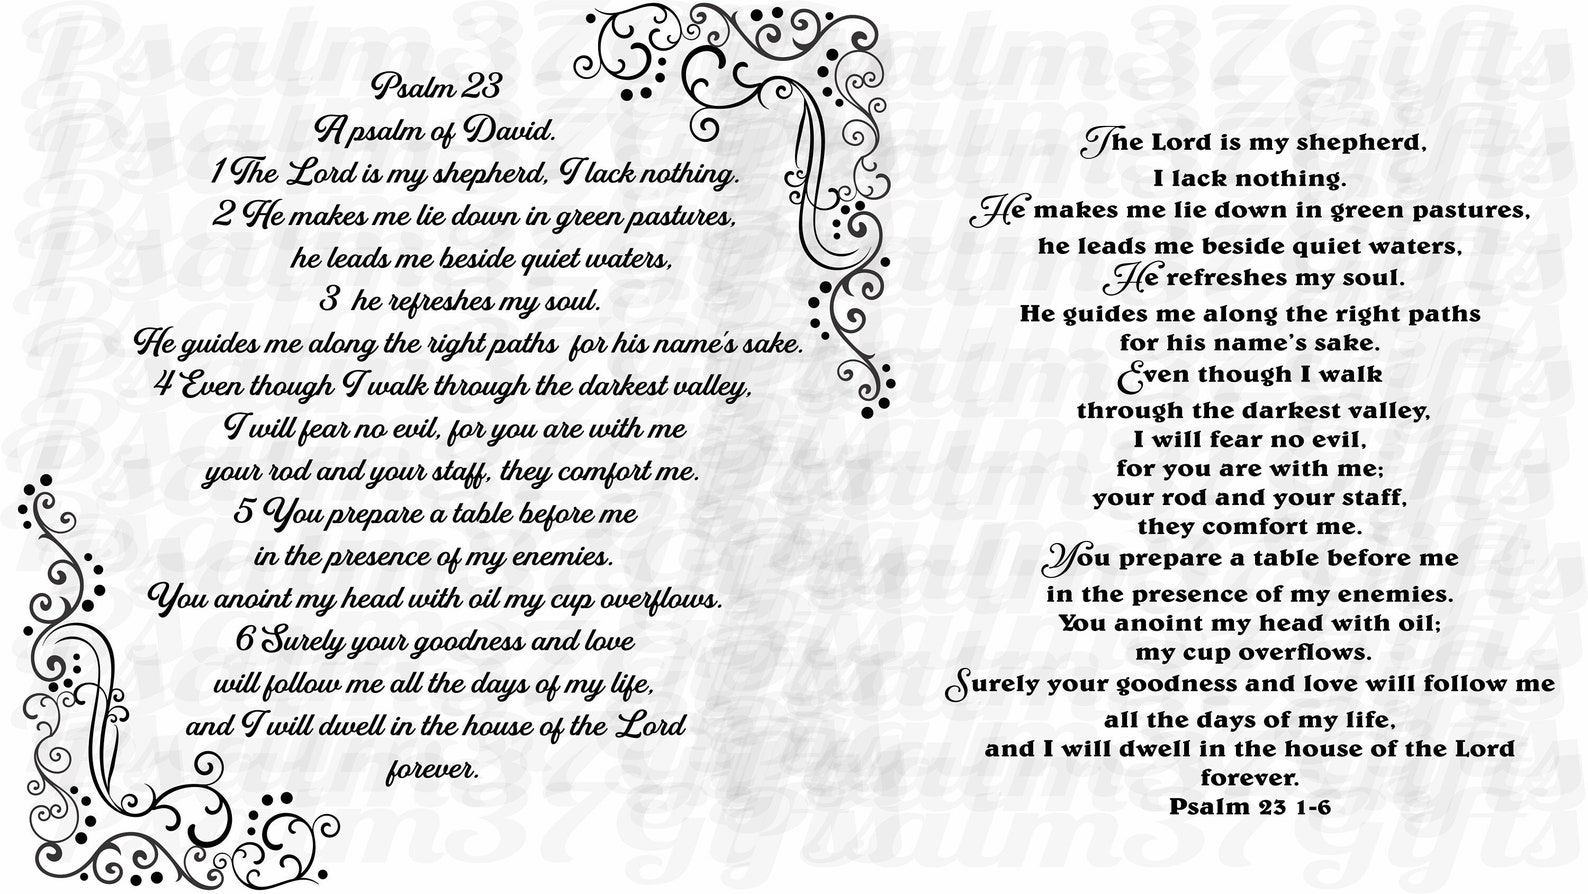 Psalm 23
A psalm of David.
1 The Lord is my shepherd, I lack nothing.
2 He makes me lie down in green pastures,
he leads me beside quiet waters,
3 he refreshes my soul.
He guides me along the right paths for his name's sake.
4 Even though I walk through the darkest valley,
I will fear no evil, for you are with me
your rod and your staff, they comfort me.
5 You prepare a table before me
in the presence of my enemies.
You anoint my head with oil my cup overflows.
6 Surely your goodness and love
will follow me all the days of my life,
and I will dwell in the house of the Lord
forever.
The Lord is my shepherd,
I lack nothing.
He makes me lie down in green pastures,
he leads me beside quiet waters,
He refreshes my soul.
He guides me along the right paths
for his name’s sake.
Even though I walk
through the darkest valley,
I will fear no evil,
for you are with me;
your rod and your staff,
they comfort me.
You prepare a table before me
in the presence of my enemies.
You anoint my head with oil;
my cup overflows.
Surely your goodness and love will follow me
all the days of my life,
and I will dwell in the house of the Lord
forever.
Psalm 23 1-6
Psalm37Gifts
Psalm37Gifts